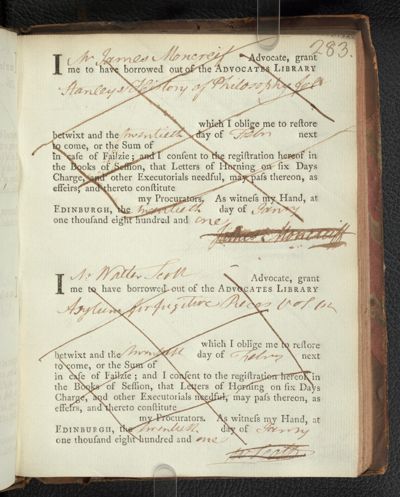 283.
I Mr James Moncreiff Advocate, grant
me to have borrowed out of the ADVOCATES LIBRARY
Stanley's History of Philosophy
which I oblige me to restore
betwixt and the twentieth day of Febry next
to come, or the Sum of
in case of Failzie; and I consent to the registration hereof in
the Books of Session, that Letters of Horning on six Days
Charge, and other Executorials needful, may pass thereon, as
effeirs, and thereto constitute
my Procurators. As witness my Hand, at
EDINBURGH, the twentieth day of Janry
one thousand eight hundred and one
James Moncreiff
I Mr Walter Scott Advocate, grant
me to have borrowed out of the ADVOCATES LIBRARY
Asylum for fugitive Pieces Vol
which I oblige me to restore
betwixt and the twentieth day of Febry next
to come, or the Sum of
in case of Failzie; and I consent to the registration hereof in
the Books of Session, that Letters of Horning on six Days
Charge, and other Executorials needful, may pass thereon, as
effeirs, and thereto constitute
my Procurators. As witness my Hand, at
EDINBURGH, the twentieth day of Janry
one thousand eight hundred and one
W Scott